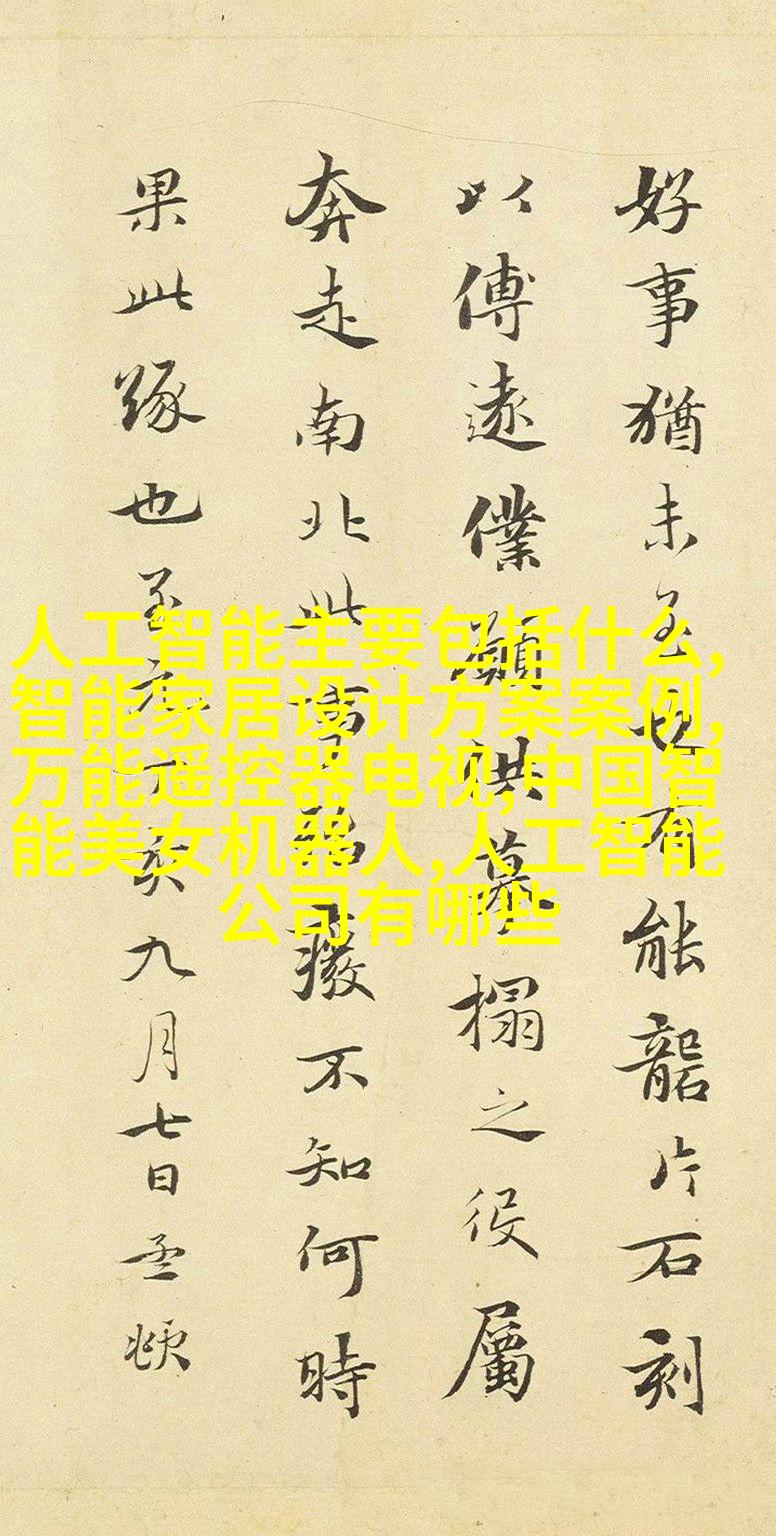 好事猶未至也有能礱片石刻
以傳遠僕願供摹搨之役屬
奔走南北此事勞癈不知何時
果此緣也至元丁亥九月七日孟頫
人工智能主要包括什么,
智能家居设计方案案例,
万能遥控器电视,中国智
能美女机器人,人工智能
公司有哪些